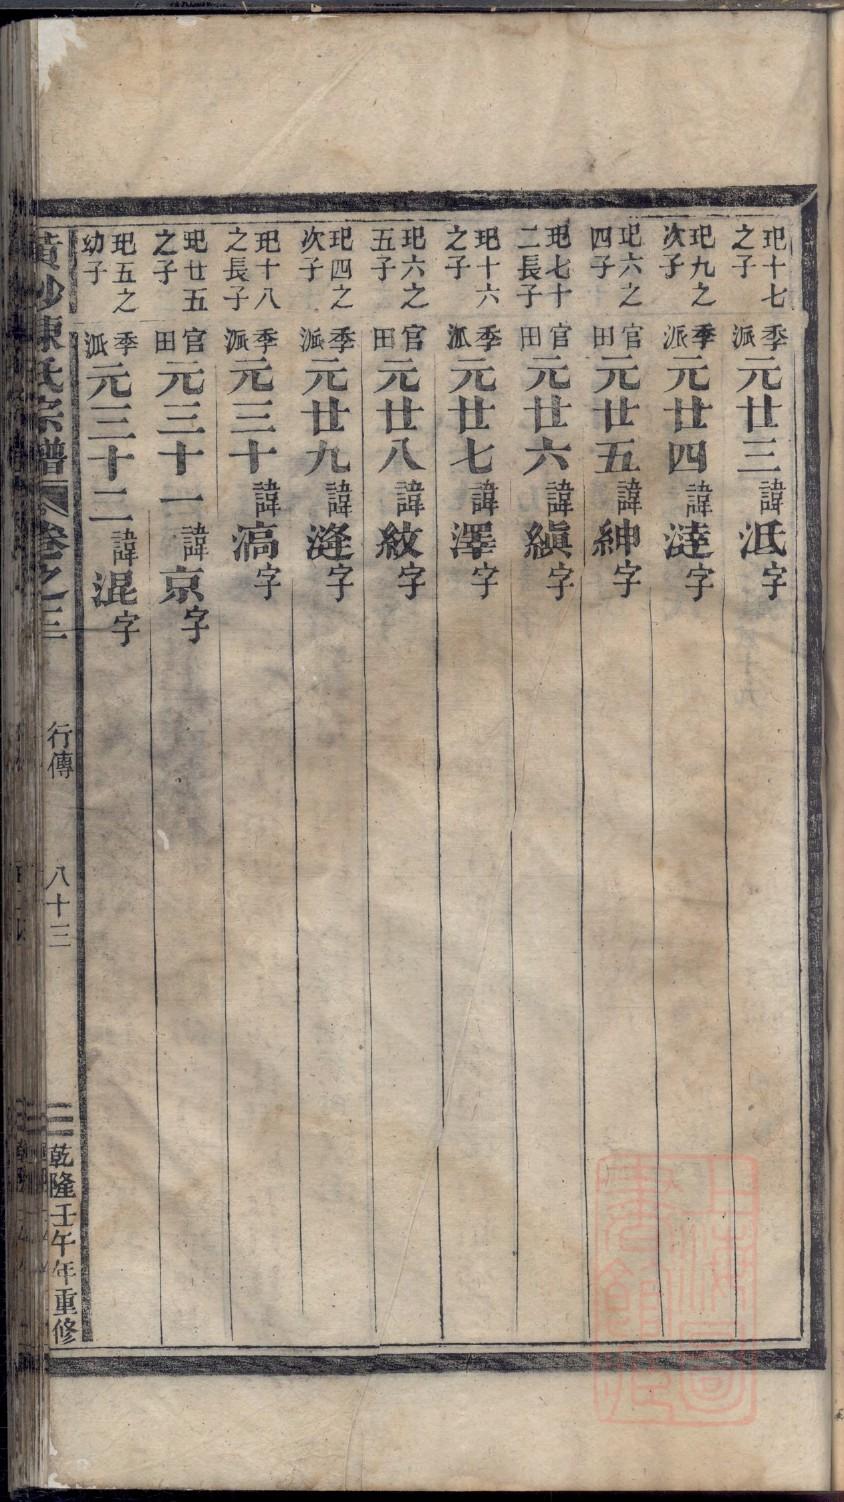 玘十七之子 季派 元廿三 諱泜字
玘九之次子 季派 元廿四 諱達字
玘六之四子 官田 元廿五 諱紳字
玘七十二長子 官田 元廿六 諱縝字
玘十六之子 季派 元廿七 諱澤字
玘六之五子 官田 元廿八 諱紋字
玘四之次子 季派 元廿九 諱漨字
玘十八之長子 季派 元三十 諱滈字
玘廿五之子 官田 元三十一 諱京字
玘五之幼子 季派 元三十二 諱混字
陳氏宗譜 卷之三 行傳 八十三 乾隆壬午年重修
上海圖書館藏